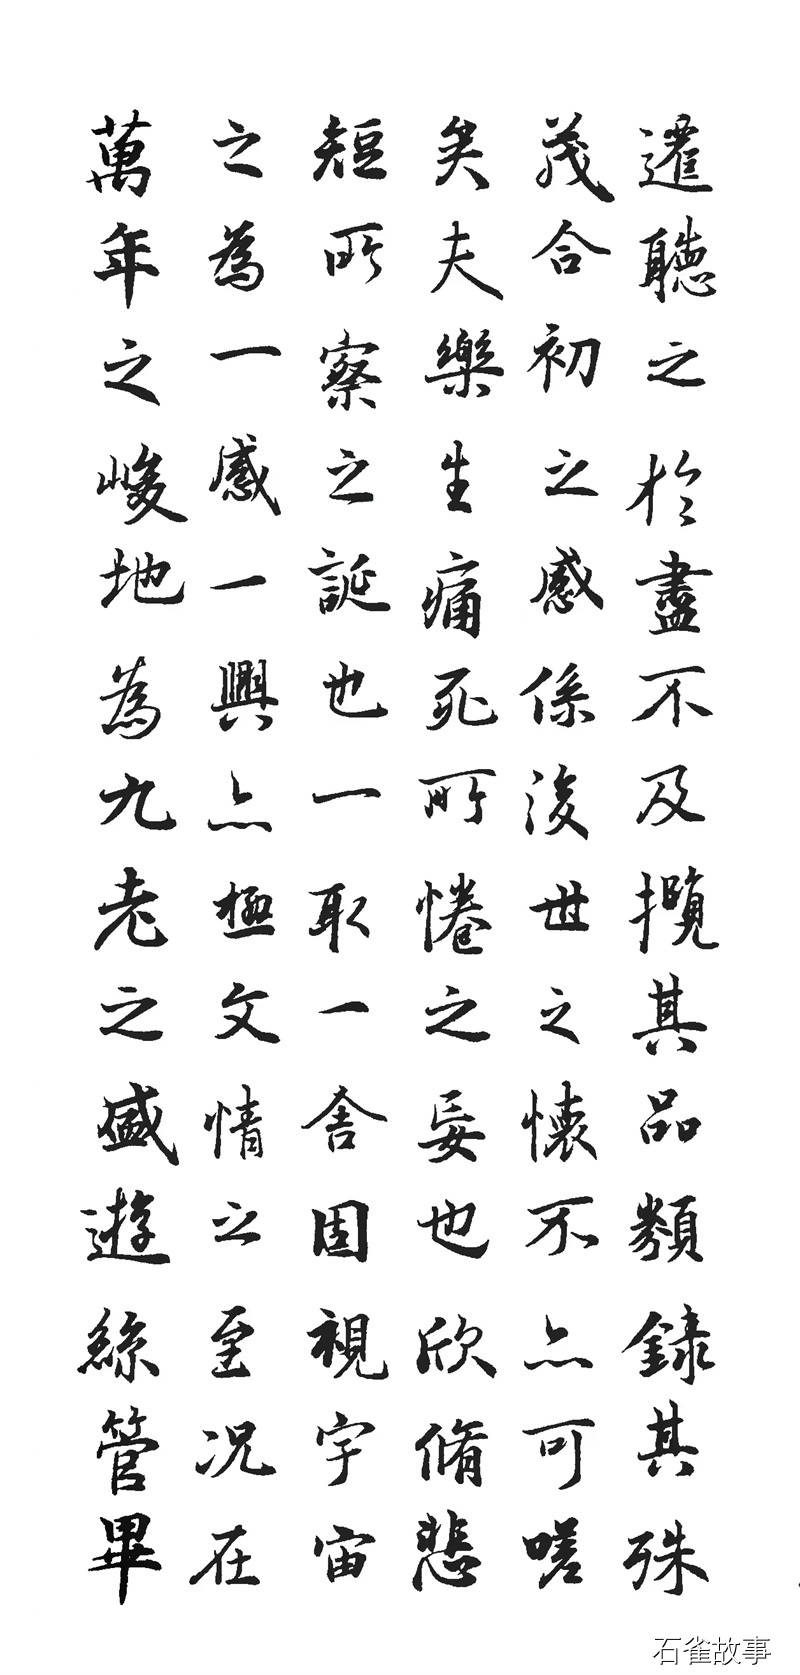 遷聽之於盡不及攬其品類錄其殊
茂合初之感係後世之懷不亦可嗟
矣夫樂生痛死所惓之妄也欣脩悲
短所察之誕也一取一舍固視宇宙
之為一感一興亦極文情之至况在
萬年之峻地為九老之盛遊絲管畢
石雀故事